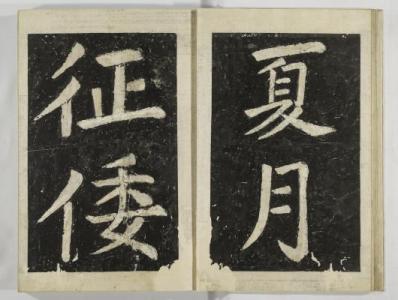 夏月
征倭